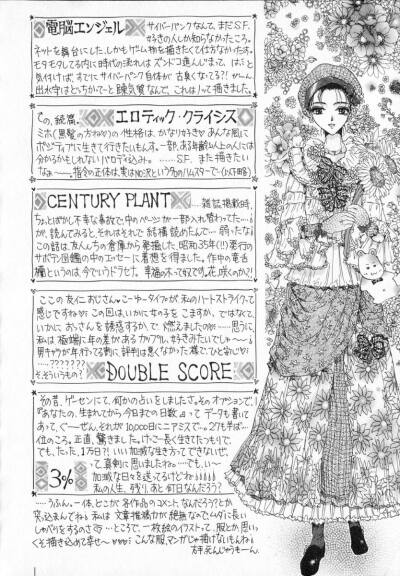 電脳エンジェル
サイバーパンクなんて、まだS.F.
好きの人しか知らなかったころ。
ネットを舞台にした、しかもゲーム物を描きたくて仕方なかった。
モタモタしてる内に時代の流れは ズンドコ進んじまって、はっと
気付けば、すでにサイバーパンク自体が 古臭くなってる?! がーん。
出水宇はどっちかってーと陳気質なんで、これはノって描きました。
その、続篇。
エロティック・クライシス
の性格は、かなり好き♡ あんな風に
ポジティブに生きて行きたいもんす。一部、ある年齢以上の人には
分かるかもしれないパロディ込み。……S.F. また描きたい
なぁ〜。
CENTURY PLANT
…雑誌掲載時、
ちょとばかし不幸な事故で、中のページが一部入れ替わってた。…
が、読んでみると、それはそれで 結構読めたんで… 弱ったなぁ
この話は、友んちの倉庫から発掘した、昭和35年(!!)発行の
サボテン図鑑の中のエッセーに着想を得ました。作中の竜舌
蘭というのは、今でいうドラセナ。幸福の木って奴です。花、咲くのか?!
ここの友仁おじさん♡こーゆータイプが 私のハートストライクって
感じですね♡ この回は、いかに女の子を こますか、ではなくて、
いかに、おっさんを誘惑するか、で 燃えましたの♡ ……思うに、
私は 極端に年の差があるカップル、好きみたいでし〜♪
男キャラが年行ってる割に 評判は悪くなかった様で、ひと安心♡
……???????
そういうもの?
DOUBLE SCORE
その昔、ゲーセンにて、何かの占いをしましたさ。そのオプションで
『あなたの、生まれてから 今日までの日数』って データも書いて
あって、ぐーぜん、それが 10,000日にニアミスで。…27も半ば…
位のころ。正直、驚きました。けっこー長く生きてたつもりで、
でも、たった、1万日?! いい加減な生き方ってできないぜ、
って、真剣に思いましたね。…でも、い〜
加減な日々を送ってるけどね♪♪♪
私の人生、残り、あと何日なんだろう?
3%
……うふん。一体、どこが 各作品のコメント、なんだろう?とか
突っ込まんでね♪ 私は 文章描構力が 絶無なので、ムダに長い
しゃべりをするのさ♡ …ところで、一枚絵のイラストって、服とか思い
くそ描き込めて幸せ〜♥♥♥ こんな服、マンガじゃ描けないもんね♪